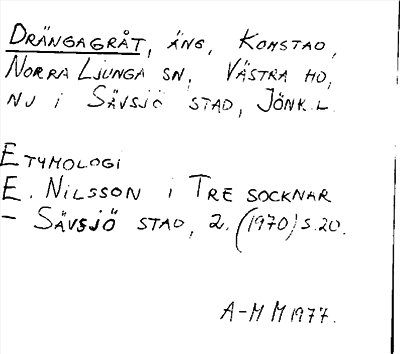 DRÄNGAGRÅT, ÄNG, KOMSTAD,
NORRA LJUNGA SN, VÄSTRA HD,
NU I SÄVSJÖ STAD, JÖNK.L.
ETYMOLOGI
E. NILSSON I TRE SOCKNAR
– SÄVSJÖ STAD, 2. (1970) S.20.
A-M M 1977.